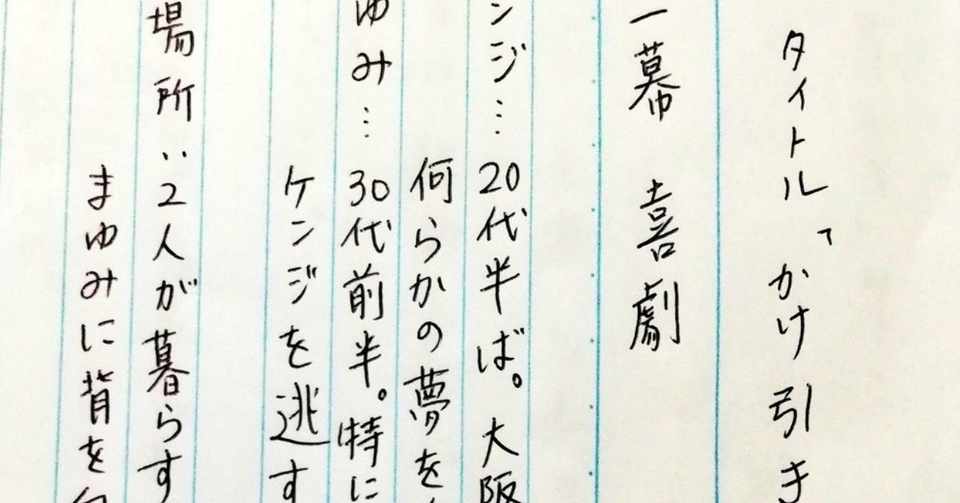 タイトル「かけ引き
一幕 喜劇
ンジ…20代半ば。大阪
何らかの夢を
ゆみ…30代前半。特に
ケンジを逃す
場所…2人が暮らす
まゆみに背を